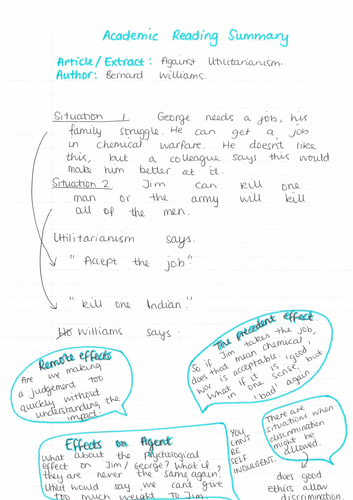 Academic Reading Summary
Article / Extract: Against Utilitarianism.
Author: Bernard Williams.
Situation 1 George needs a job, his
family struggle. He can get a job
in chemical warfare. He doesn't like
this, but a colleague says this would
make him better at it.
Situation 2 Jim can kill one
man or the army will kill
all of the men.
Utilitarianism says.
"Accept the job."
"kill one Indian."
Williams says:
Remote effects
Are we making
a judgement too
quickly without
understanding the
impact.
The precedent effect
So if Jim takes the job,
does that mean chemical
war is acceptable.
What if it is 'good'
in one sense, but
'bad' again
Effects on Agent
What about the psychological
effect on Jim / George? What if
they are never the same again?
Util would say we cant give
too much weight to Jim
YOU
CAN'T
BE
SELF
INDULGENT.
There are
situations when
discrimination
might be
allowed.
does good
ethics allow
discrimination